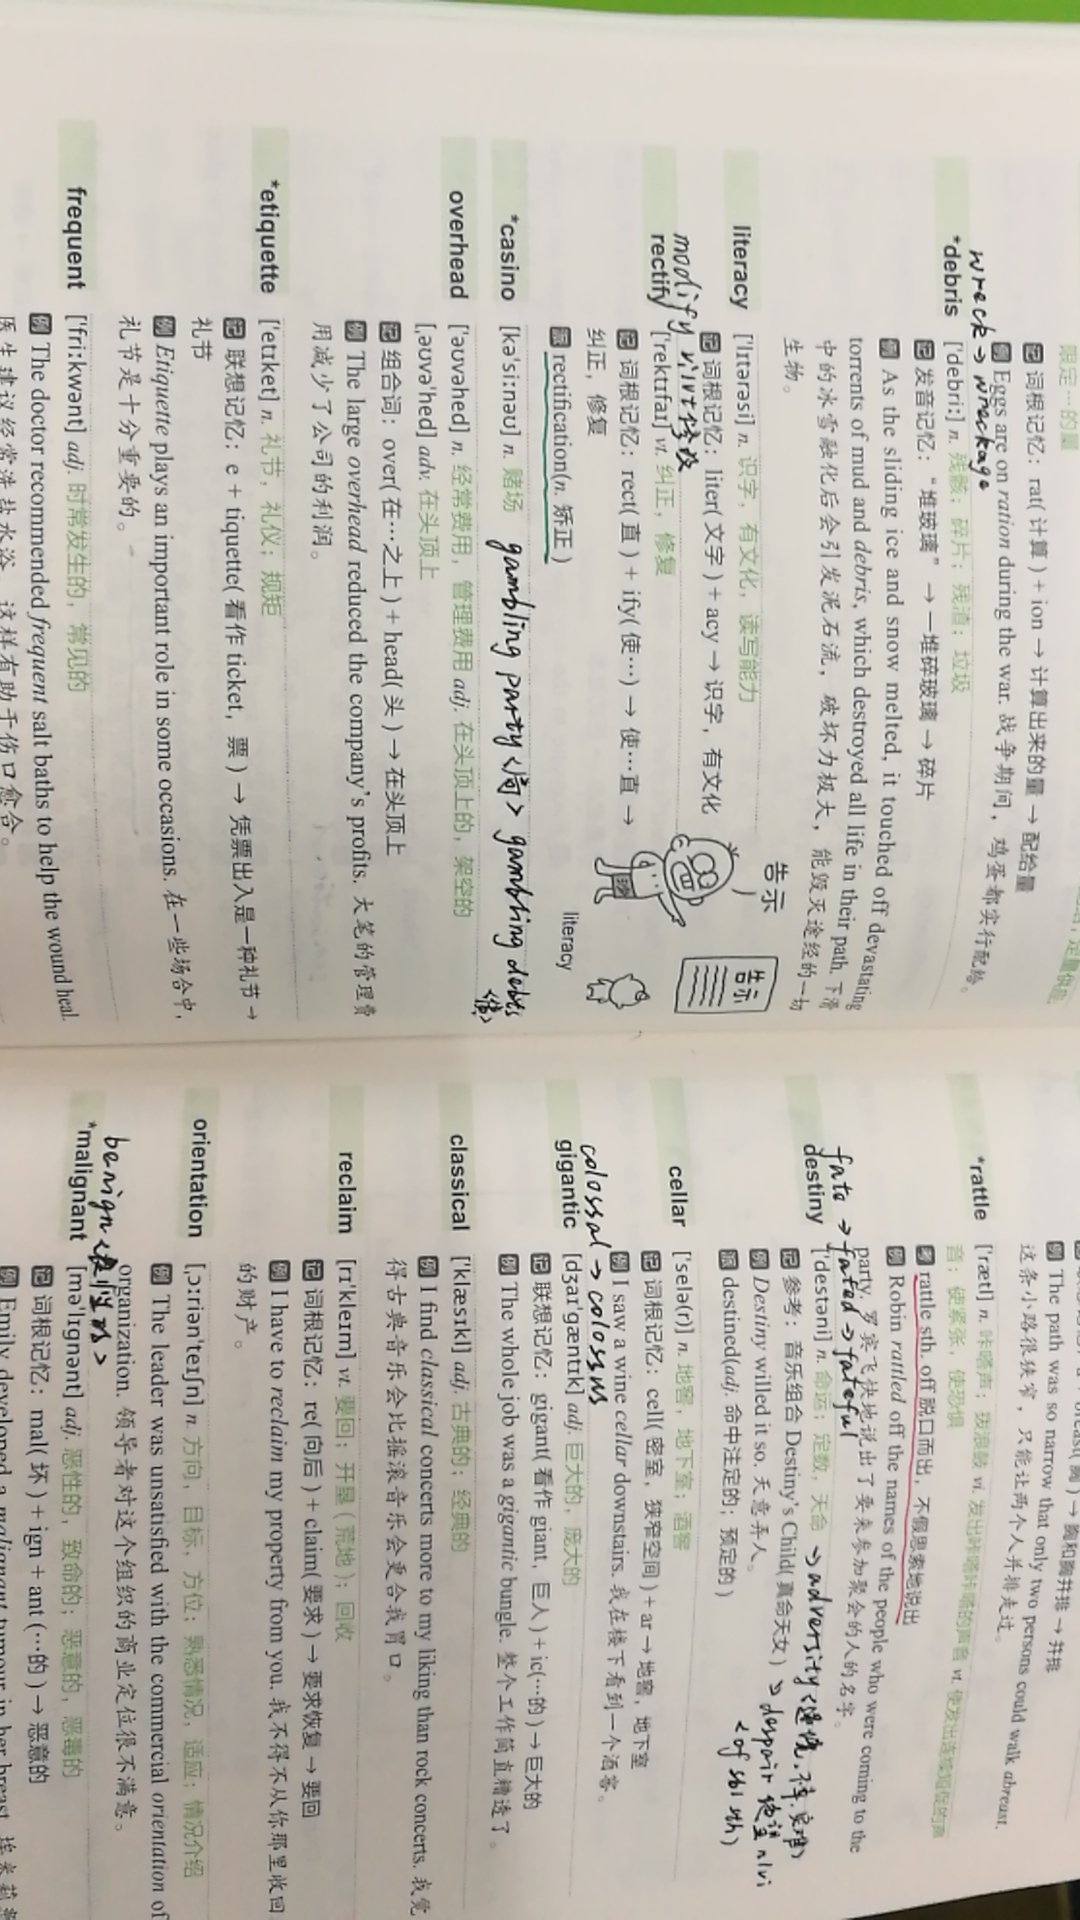 限定…的量
记 词根记忆：rat( 计算 ) + ion → 计算出来的量 → 配给量
例 Eggs are on ration during the war. 战争期间，鸡蛋都实行配给。
wreck → wreckage
*debris ['debriː] n. 残骸；碎片；残渣；垃圾
记 发音记忆：“堆玻璃” → 一堆碎玻璃 → 碎片
例 As the sliding ice and snow melted, it touched off devastating
torrents of mud and debris, which destroyed all life in their path. 下滑
中的冰雪融化后会引发泥石流，破坏力极大，能毁灭途经的一切
生物。
literacy ['lɪtərəsi] n. 识字，有文化，读写能力
记 词根记忆：liter( 文字 ) + acy → 识字，有文化
modify v. 修改
rectify ['rektɪfaɪ] vt. 纠正，修复
记 词根记忆：rect( 直 ) + ify( 使…) → 使…直 →
纠正，修复
派 rectification(n. 矫正 )
告示
告示
literacy
*casino [kə'siːnəʊ] n. 赌场 gambling party <窝> gambling debts
<债>
overhead ['əʊvəhed] n. 经常费用，管理费用 adj. 在头顶上的，架空的
[ˌəʊvə'hed] adv. 在头顶上
记 组合词：over( 在…之上 ) + head( 头 ) → 在头顶上
例 The large overhead reduced the company's profits. 大笔的管理费
用减少了公司的利润。
*etiquette ['etɪket] n. 礼节，礼仪；规矩
记 联想记忆：e + tiquette( 看作 ticket，票 ) → 凭票出入是一种礼节 →
礼节
例 Etiquette plays an important role in some occasions. 在一些场合中，
礼节是十分重要的。
frequent ['friːkwənt] adj. 时常发生的，常见的
例 The doctor recommended frequent salt baths to help the wound heal.
医生建议经常洗盐水浴，这样有助于伤口愈合。
→ 胸和胸并排 → 并排
例 The path was so narrow that only two persons could walk abreast.
这条小路很狭窄，只能让两个人并排走过。
*rattle ['rætl] n. 咔嗒声；拨浪鼓 vi. 发出咔嗒咔嗒的声音 vt. 使发出连续短促的声
音；使紧张，使恐惧
考 rattle sth. off 脱口而出，不假思索地说出
例 Robin rattled off the names of the people who were coming to the
party. 罗宾飞快地说出了要来参加聚会的人的名字。
fate → fated → fateful
destiny ['destəni] n. 命运；定数，天命 → adversity
记 参考：音乐组合 Destiny's Child( 真命天女 ) → despair 绝望 n/vi
< of sb/ sth)
例 Destiny willed it so. 天意弄人。
派 destined(adj. 命中注定的；预定的 )
cellar ['selə(r)] n. 地窖，地下室；酒窖
记 词根记忆：cell( 密室，狭窄空间 ) + ar → 地窖，地下室
例 I saw a wine cellar downstairs. 我在楼下看到一个酒窖。
colossal → colossus
gigantic [dʒaɪ'gæntɪk] adj. 巨大的，庞大的
记 联想记忆：gigant( 看作 giant，巨人 ) + ic(…的 ) → 巨大的
例 The whole job was a gigantic bungle. 整个工作简直糟透了。
classical ['klæsɪkl] adj. 古典的；经典的
例 I find classical concerts more to my liking than rock concerts. 我觉
得古典音乐会比摇滚音乐会更合我胃口。
reclaim [rɪ'kleɪm] vt. 要回；开垦（荒地）；回收
记 词根记忆：re( 向后 ) + claim( 要求 ) → 要求恢复 → 要回
例 I have to reclaim my property from you. 我不得不从你那里收回
的财产。
orientation [ˌɔːriən'teɪʃn] n. 方向，目标，方位；熟悉情况，适应；情况介绍
例 The leader was unsatisfied with the commercial orientation of
organization. 领导者对这个组织的商业定位很不满意。
benign <良性的>
*malignant [mə'lɪgnənt] adj. 恶性的，致命的；恶意的，恶毒的
记 词根记忆：mal( 坏 ) + ign + ant (…的 ) → 恶意的
例 Emily developed a malignant tumour in her breast.